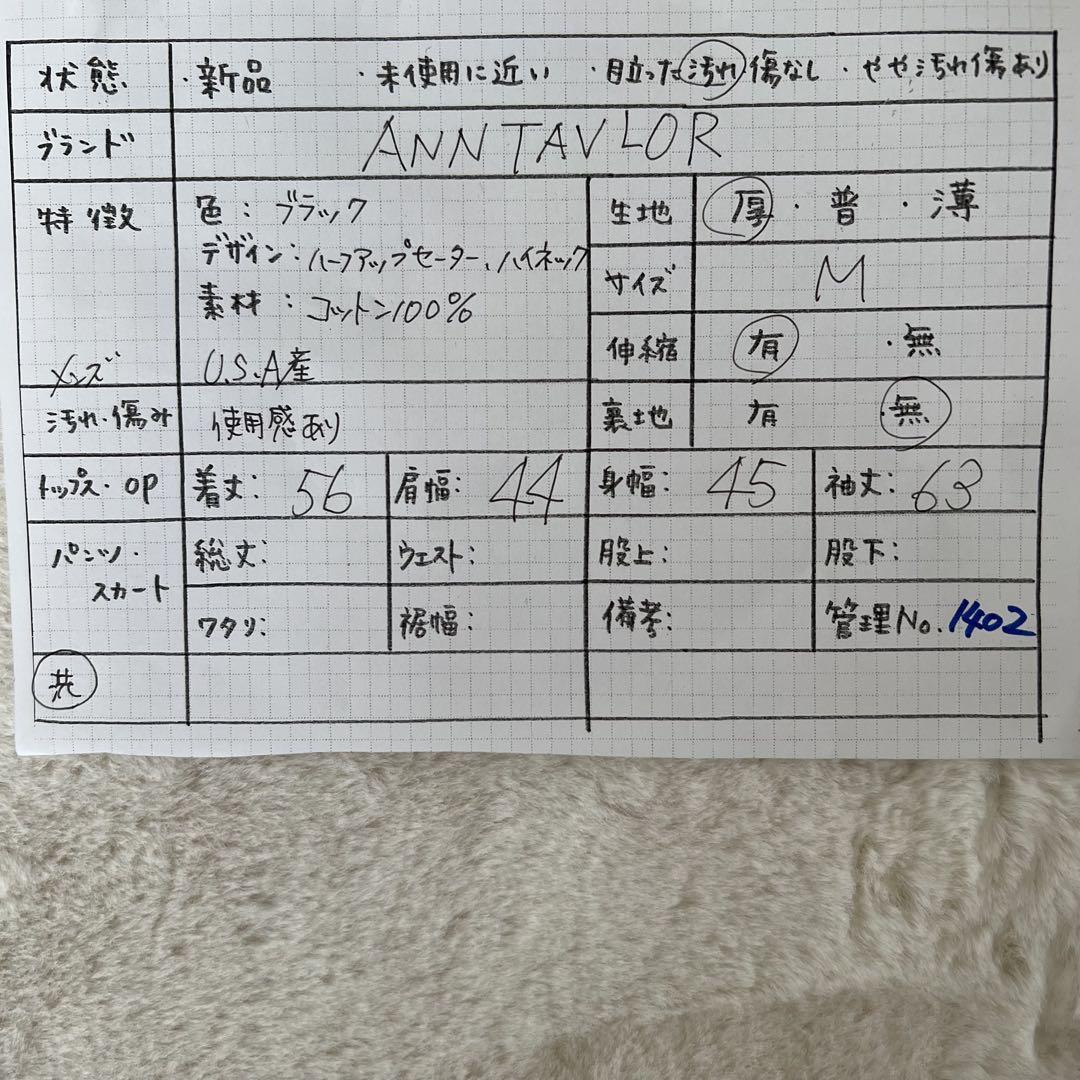 状態 ・新品 ・未使用に近い ・目立った汚れ傷なし ・やや汚れ傷あり
ブランド ANN TAYLOR
特徴 色：ブラック 生地 厚・普・薄
デザイン：ハーフアップセーター、ハイネック
素材：コットン100% サイズ M
メンズ U.S.A産 伸縮 有 ・無
汚れ・傷み 使用感あり 裏地 有 ・無
トップス・OP 着丈：56 肩幅：44 身幅：45 袖丈：63
パンツ・スカート 総丈： ウエスト： 股上： 股下：
ワタリ： 裾幅： 備考： 管理No.1402
共